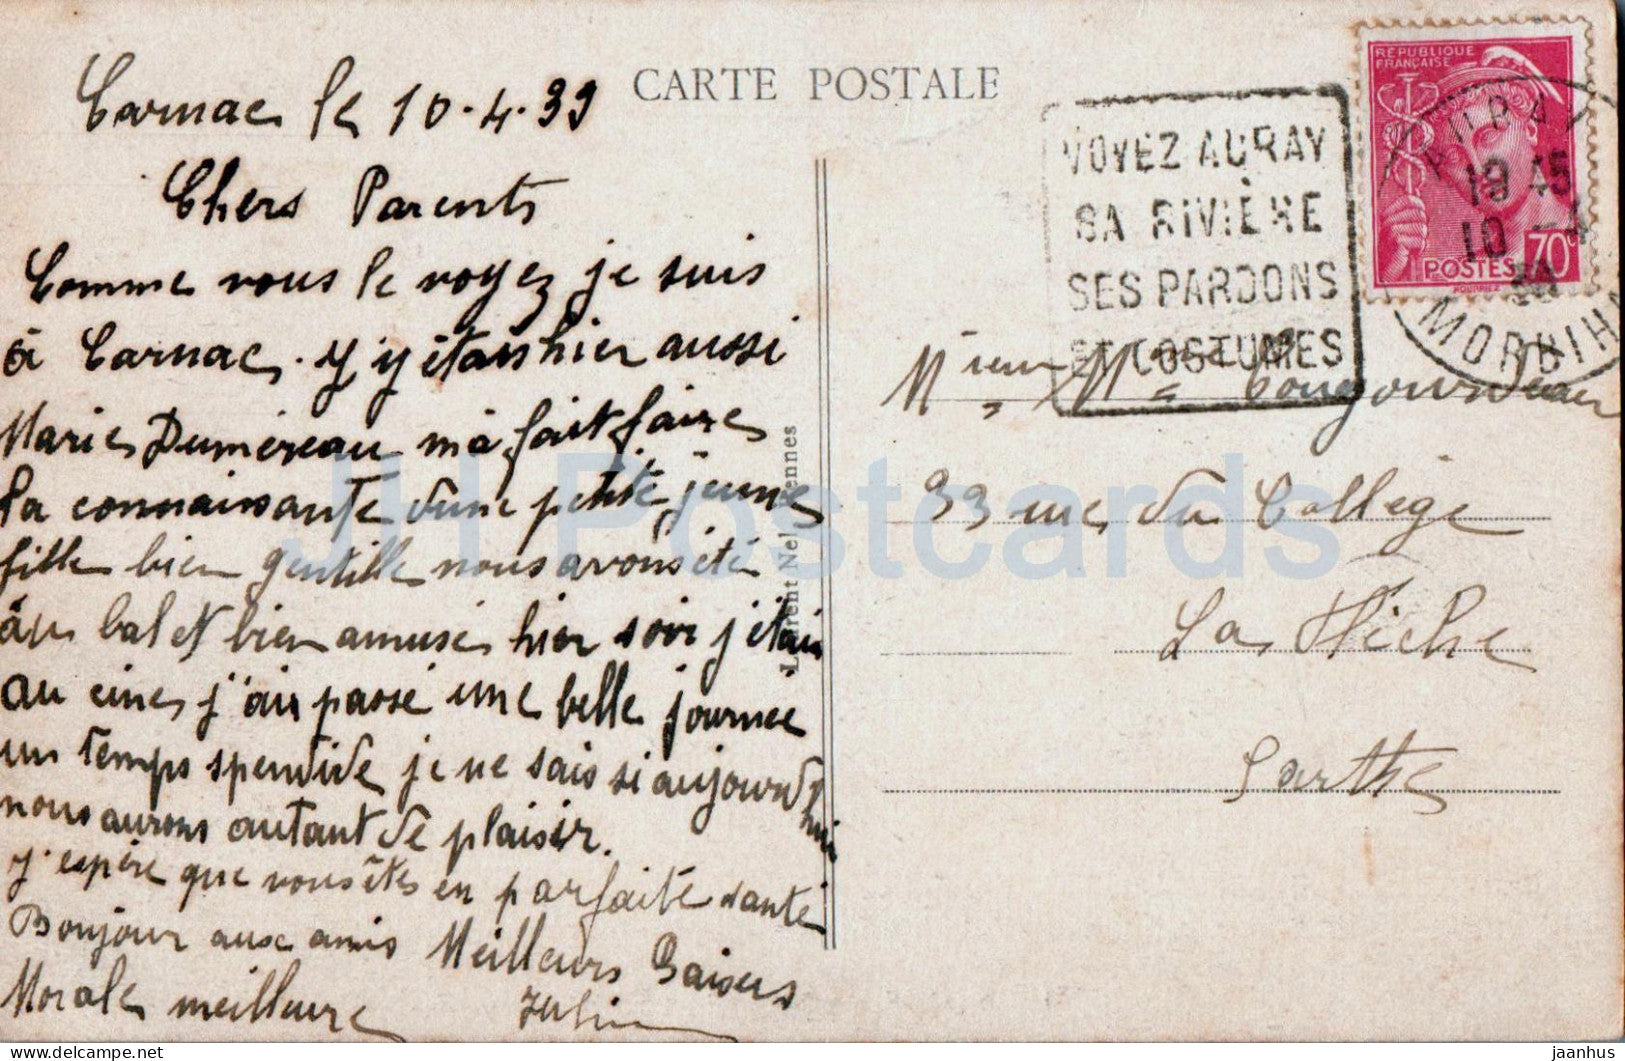 CARTE POSTALE
Carnac le 10-4-39
Chers Parents
Comme vous le voyez je suis
à Carnac. J'y étais hier aussi
Marie Dumereau m'a fait faire
la connaissante d'une petite jeune
fille bien gentille nous avons été
au bal et bien amuse hier soir j'étais
au cine, j'ai passé une belle journée
un temps spendide je ne sais si aujourd'hui
nous aurons autant de plaisir.
J'espère que vous êtes en parfaite santé
Bonjour aux amis Meilleurs Baisers
Morale meilleure
VOYEZ AURAY
SA RIVIÈRE
SES PARDONS
ET COSTUMES
RÉPUBLIQUE
FRANÇAISE
POSTES 70c
AURAY
19 45
10 -4
39
MORBIHAN
Laurent Nel Rennes
33 rue du Collège
La Flèche
Sarthe
JH Postcards
delcampe.net
jaanhus